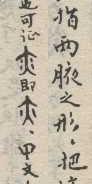 指两腋之形，把
也可证夾即亦，甲文